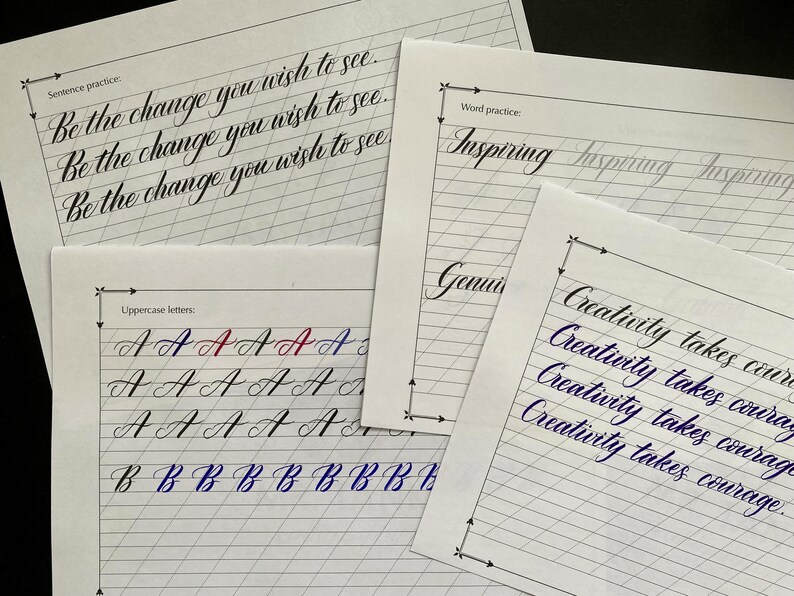 Sentence practice:
Be the change you wish to see.
Be the change you wish to see.
Be the change you wish to see.
Word practice:
Inspiring Inspiring Inspiring
Creativity takes
Creativity takes courag
Creativity takes courage
Creativity takes courage.
Uppercase letters:
A A A A A A
A A A A A A
A A A A A A A
B B B B B B B B B